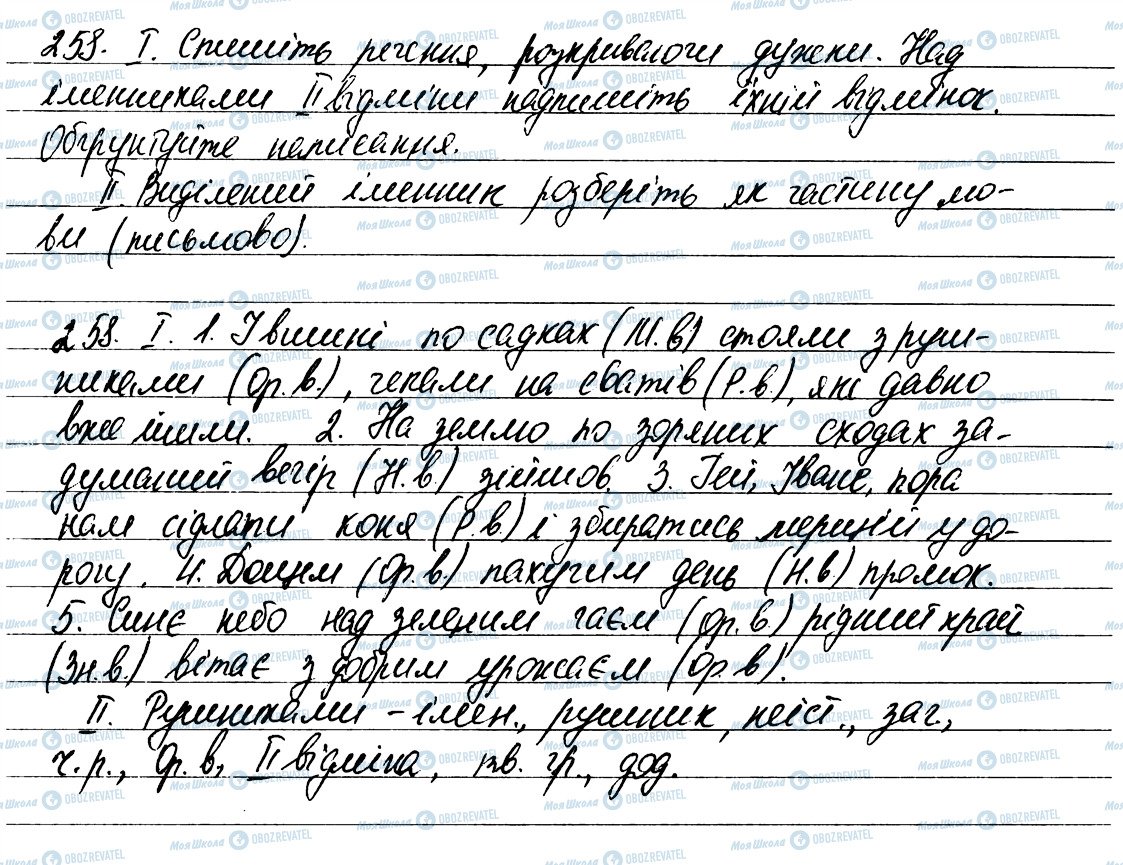 258. I. Спишіть речення, розкриваючи дужки. Над
іменниками II відміни надпишіть їхній відмінок.
Обґрунтуйте написання.
II Виділений іменник розберіть як частину мо-
ви (письмово).
258. I. 1. Івшині по садках (М.в) стояли з руш-
никами (Ор.в.), чекали на сватів (Р.в.), які давно
вже йшли. 2. На землю по зоряних сходах за-
думаний вечір (Н.в.) зійшов. 3. Гей, Іване, пора
нам сідлати коня (Р.в.) і збиратись мерщій у до-
рогу. 4. Дощем (Ор.в.) пахучим день (Н.в) промок.
5. Синє небо над зеленим гаєм (Ор.в) рідний край
(Зн.в.) вітає з добрим урожаєм (Ор.в).
II. Рушниками – імен., рушник, неіст., заг,
ч.р., Ор.в, II відміна, тв. гр., дод.